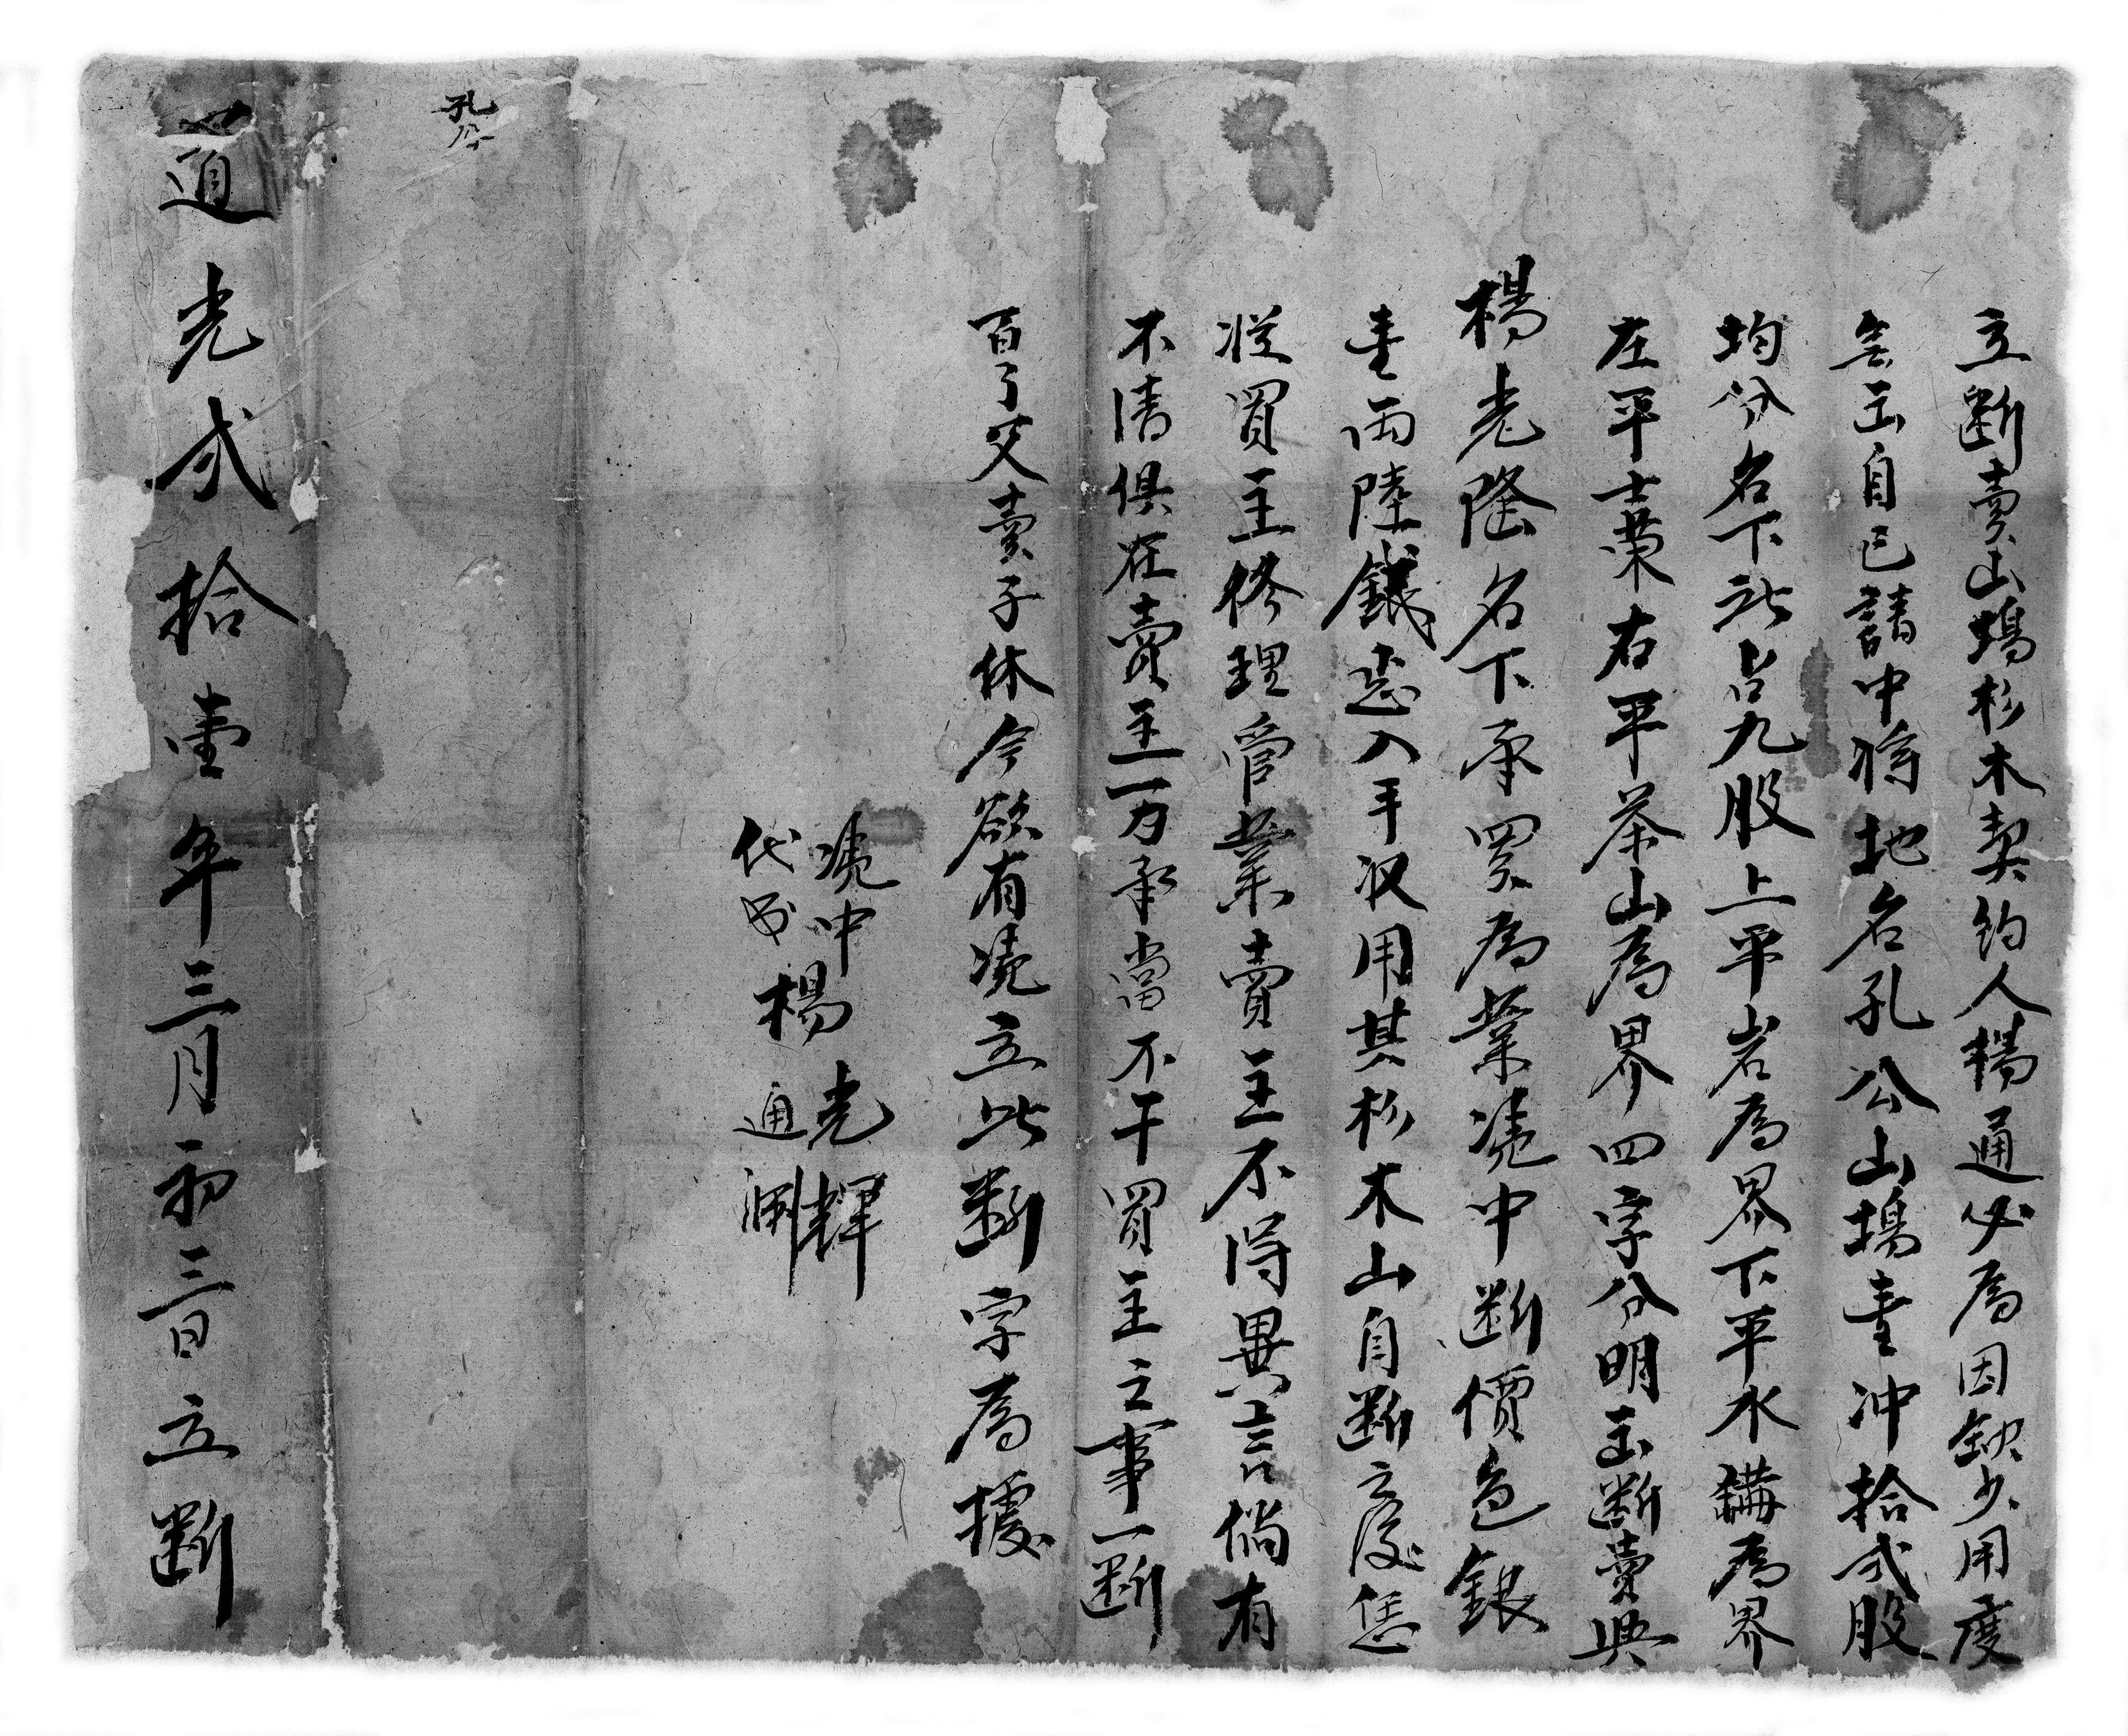 立断賣山塲杉木契約人楊通必為因缺少用度
無出自己請中將地名孔公山塲壹冲拾弍股
均分名下所占九股上平岩為界下平水溝為界
左平士榮右平茶山為界四字分明出断賣與
楊光隆名下承買為業凴中断價色銀
壹両陸錢悉入手収用其杉木山自断之後恁
從買主修理管業賣主不得異言倘有
不清俱在賣主一方承當不干買主之事一断
百了父賣子休今欲有凴立此断字為據
凴中楊光輝
代筆楊通渊
孔公
道光弍拾壹年三月初三日立断